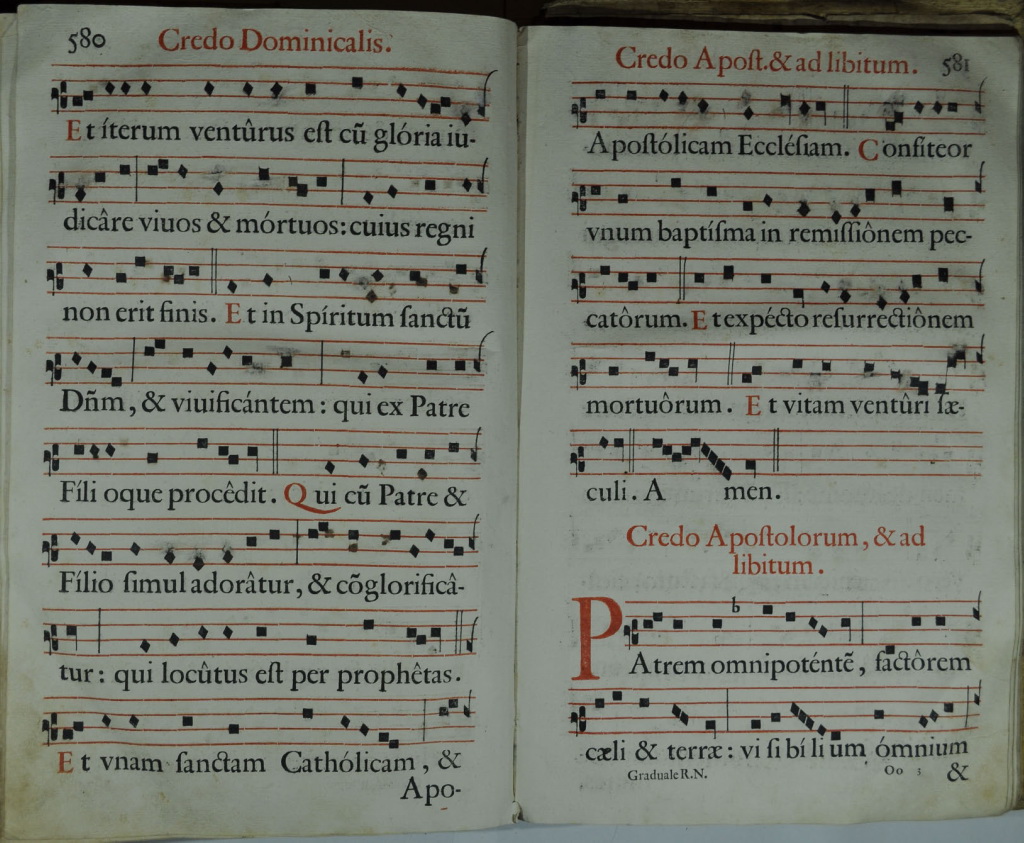 580 Credo Dominicalis.
Et íterum ventûrus eſt cũ glória iu-
dicâre viuos & mórtuos: cuius regni
non erit finis. Et in Spíritum ſanctũ
Dñm, & viuificántem: qui ex Patre
Fíli oque procêdit. Qui cũ Patre &
Fílio ſimul adorâtur, & cõglorificâ-
tur: qui locûtus eſt per prophêtas.
Et vnam ſanctam Cathólicam, &
Apo-
Credo Apoſt. & ad libitum. 581
Apoſtólicam Eccléſiam. Confiteor
vnum baptíſma in remiſſiônem pec-
catôrum. Et expécto reſurrectiônem
mortuôrum. Et vitam ventûri ſæ-
culi. A men.
Credo Apoſtolorum, & ad
libitum.
b
PAtrem omnipoténtẽ, factôrem
cæli & terræ: vi ſi bí li um ómnium
Graduale R.N. Oo 3 &